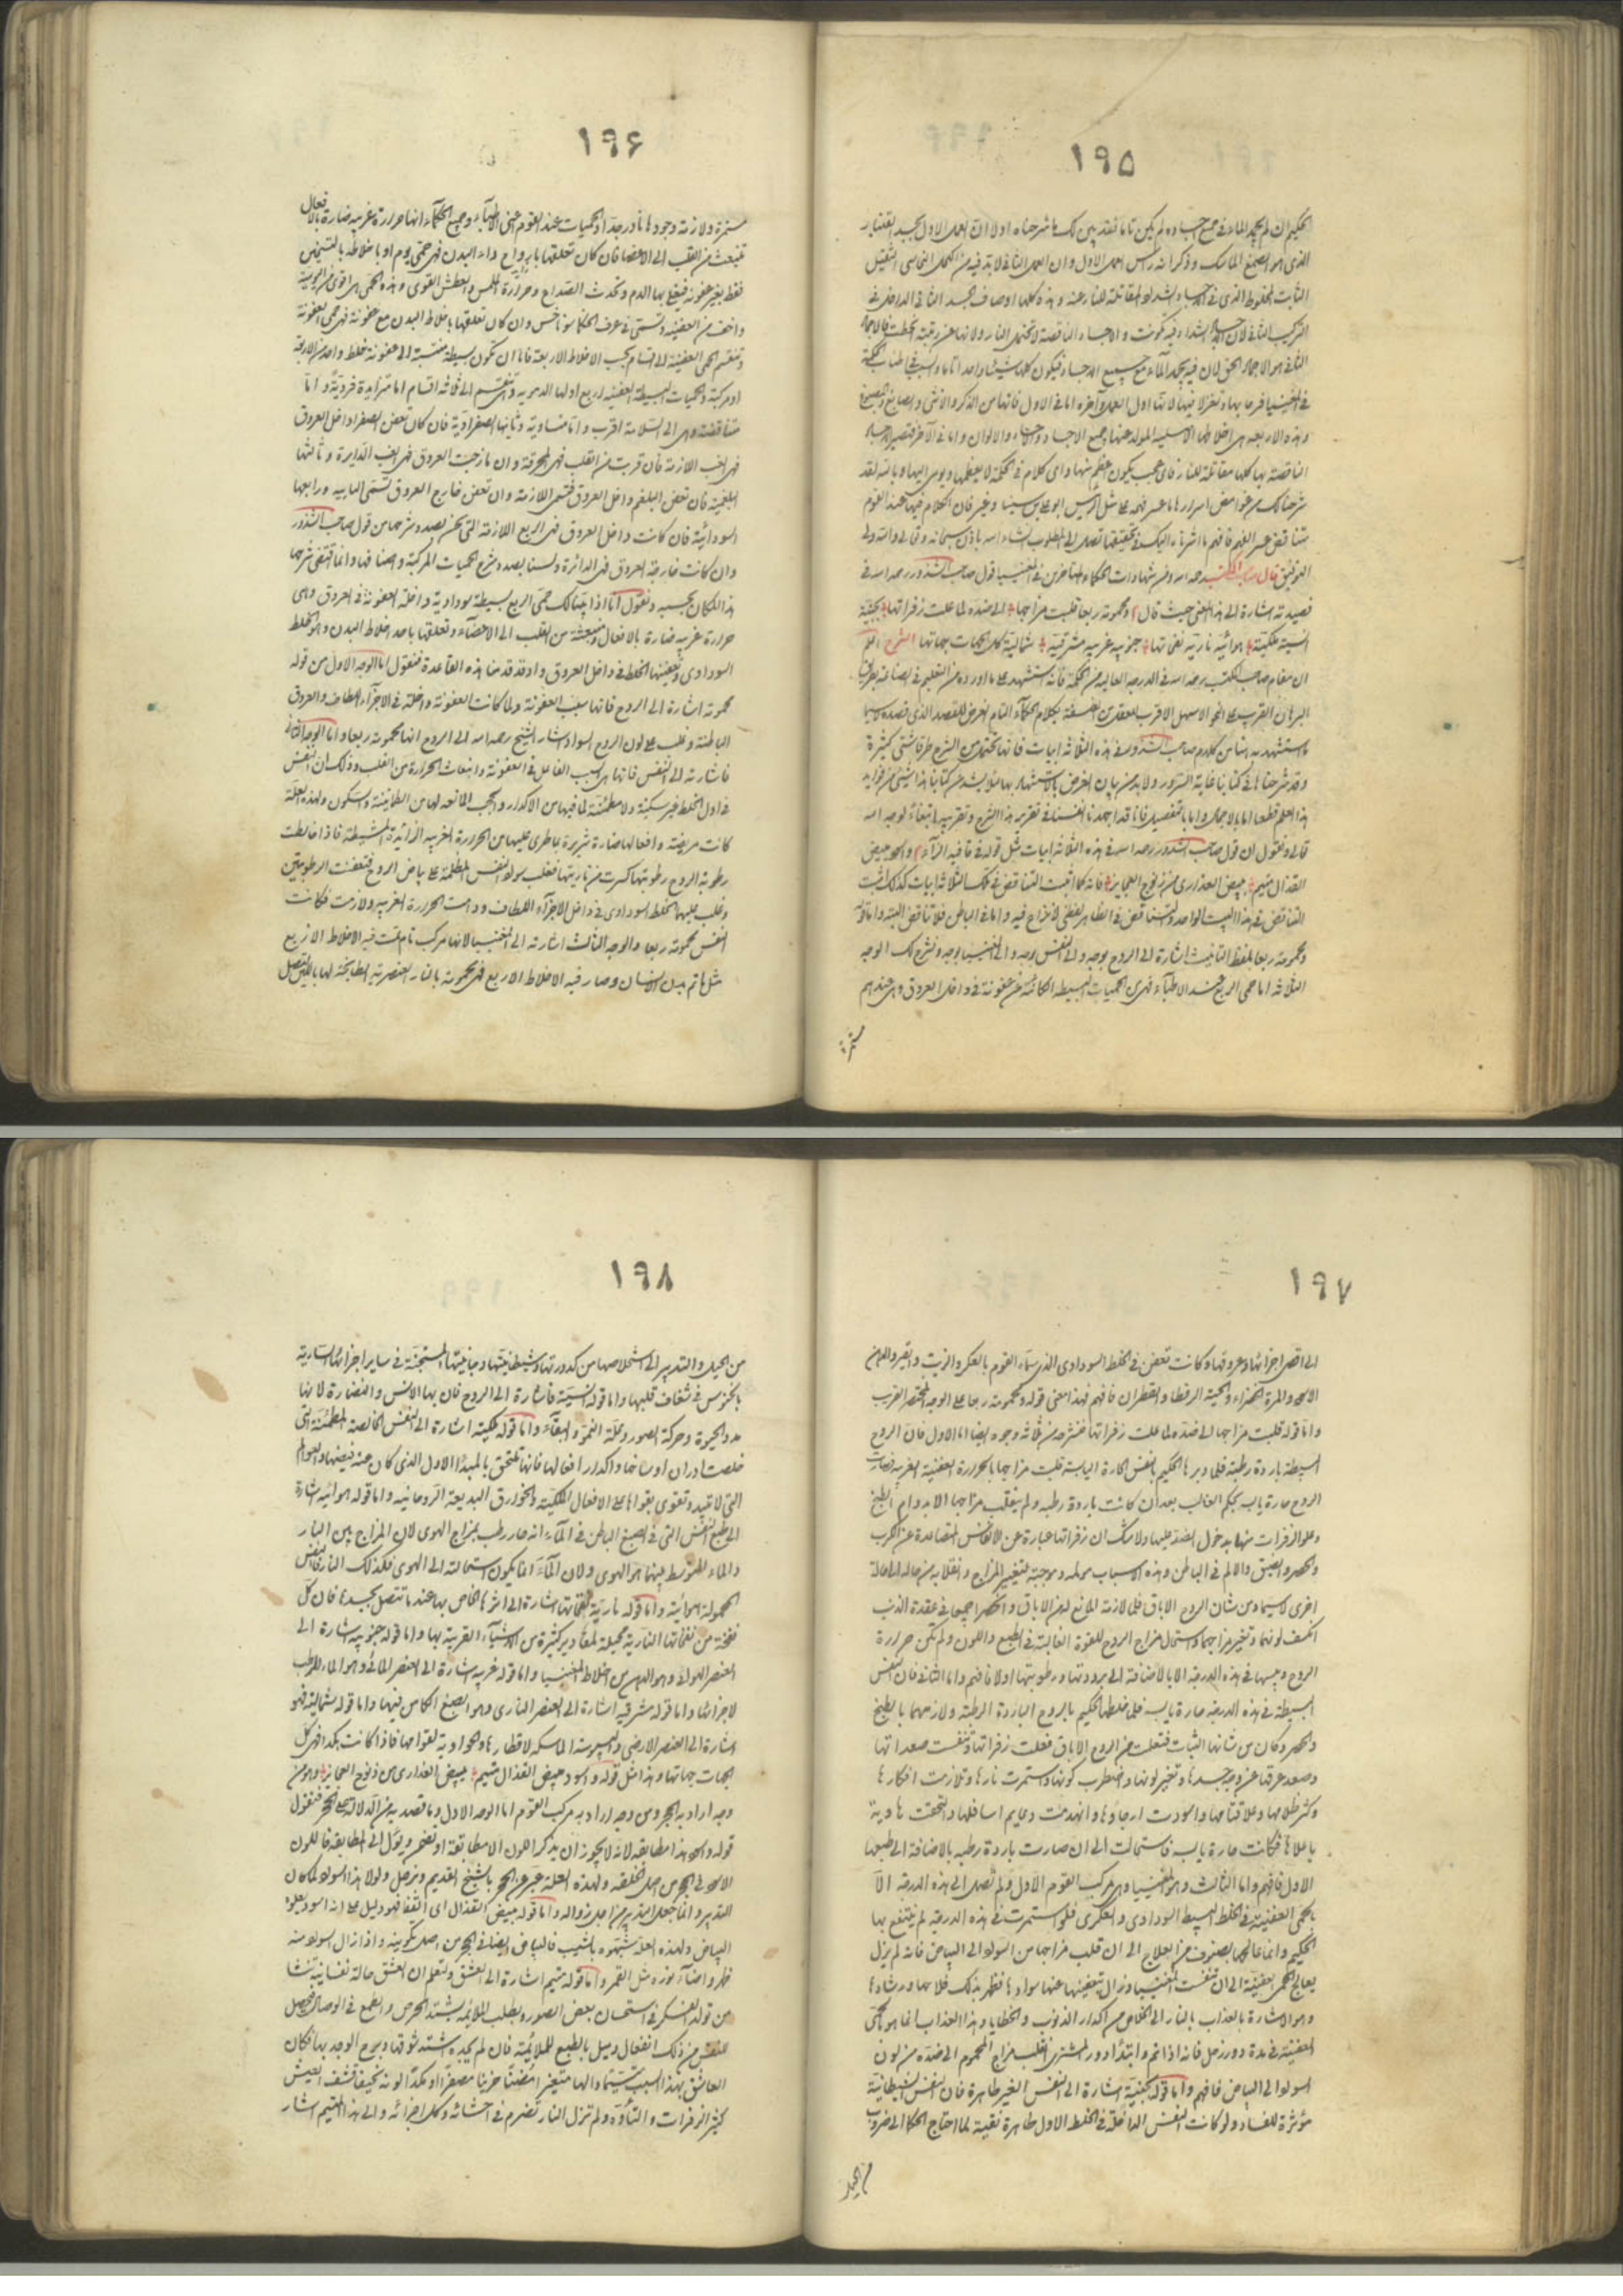 ١٩۵
الحكيم ان لم يجمد الماء في جميع اجساده لم يكن تاما فقد تبين لك ما شرحناه اولا ان العمل الاول
الذي هو الصمغ الماسك وذكر انه راس العمل الاول وان العمل الثاني لا بد فيه من النحاسي الثقيل
الثابت المخلوط الذي في الاجساد لشدة المقاتلة للنار عنه وهذه كلها اوصاف الجسد الثاني الداخل في
التركيب الثاني لان الاجساد
الثاني هو الاجماد الحق لان فيه يجمد الماء مع جميع الاجساد فيكون كلها شيئا واحدا تاما
في المغنيسيا
وهذه الاربعة هي اخلاطها الاصلية المولد عنها جميع الاجساد والالوان واما في الآخر
الناقصة بها كلها مقاتلة للنار فاي عجب يكون اعظم منها واي كلام في الحكمة
شرحنا لك من غوامض اسرارها ما عسر فهمه على مثل الرئيس ابو علي بن سينا وغيره فان الكلام فيها عند القوم
متناقض عسر الفهم فافهم ما اشرنا اليك في تحقيقها تصل الى المطلوب ان شاء الله باذن الله سبحانه وتعالى والله ولي
التوفيق قال صاحب المكتسب رحمه الله ومن شهادات الحكماء المتاخرين في المغنيسيا قول صاحب الشذور رحمه الله في
قصيدته اشارة الى هذا المعنى حيث قال ومحمومة ربعا قلبت مزاجها الى ضده لما علت زفراتها بجنية
انسية ملكية هوائية نارية نفخاتها جنوبية غربية مشرقية شمالية كل الجهات جهاتها الشرح اعلم
ان مقام صاحب المكتسب رحمه الله في الدرجة العالية من الحكمة فانه استشهد على ما اورده من التعليم في
البرهان القريب على النحو الاسهل الاقرب للعقد من الفلسفة بكلام الحكماء التام الغرض للمقصد الذي قصده لا سيما
واستشهد به هنا من كلام صاحب الشذور في هذه الثلاثة ابيات فانها تحتمل من الشرح طرقا شتى كثيرة
وقد شرحناها في كتابنا غاية السرور ولا بد من بيان الغرض بالاستشهاد بها
هذا العلم قطعا اما بالاجمال واما بالتفصيل فانا قد اجهدنا انفسنا في تقرير هذا الشرح وتقريبه ابتغاء لوجه الله
تعالى ونقول ان قول صاحب الشذور رحمه الله في هذه الثلاثة ابيات مثل قوله في قافية الراء واسود مبيض
القذال متيم يبيض العذارى من زنوج العجائز فانه كما اثبت التناقض في تلك الثلاثة ابيات كذلك اثبت
التناقض في هذا البيت الواحد والتناقض في الظاهر لفظي لا نزاع فيه واما في الباطن فلا تناقض البتة واما قوله
ومحمومة ربعا بلفظ التانيث اشارة الى الروح بوجه والى النفس بوجه والى المغنيسيا بوجه ونشرح لك الوجه
الثلاثة اما حمى الربع عند الاطباء فهي من الحميات البسيطة الكائنة عن عفونة في داخل العروق وهي عندهم
مستمرة
١٩۶
مستمرة ولازمة وجودها نادر جدا والحميات عند القوم اعني الاطباء وجميع الحكماء انها حرارة غريبة ضارة بالافعال
تنبعث من القلب الى الاعضا فان كان تعلقها بارواح داء البدن فهي حمى يوم او باخلاطه بالتسخين
فقط بغير عفونة فيغلي بها الدم وتحدث الصداع وحرارة اللمس والعطش القوي وهذه الحمى هي اقوى من اليومية
واخف من العفنية وتسمى في عرف الحكما سونوخس وان كان تعلقها باخلاط البدن مع عفونة فهي حمى العفونة
وتنقسم حمى العفنية الى اقسام بحسب الاخلاط الاربعة فاما ان تكون بسيطة منتسبة الى عفونة خلط واحد من الاربعة
او مركبة والحميات البسيطة العفنية اربع اولها الدموية وتنقسم الى ثلاثة اقسام اما متزايدة فردية واما
متناقصة وهي الى السلامة اقرب واما متساوية وثانيها الصفراوية فان كان تعفن الصفرا داخل العروق
فهي الغب اللازمة فان قربت من القلب فهي المحرقة وان مازجت العروق فهي الغب الدايرة وثالثها
البلغمية فان تعفن البلغم داخل العروق فتسمى اللازمة وان تعفن خارج العروق تسمى النايبة ورابعها
السوداوية فان كانت داخل العروق فهي الربع اللازمة التي نحن بصدد شرحها من قول صاحب الشذور
وان كانت خارجة العروق فهي الدائرة ولسنا بصدد شرح الحميات المركبة واصنافها وانما اقتضى شرحها
هذا المكان بحسبه ونقول انا اذا بينا لك حمى الربع بسيطة سوداوية داخلة العفونة في العروق وهي
حرارة غريبة ضارة بالافعال منبعثة من القلب الى الاعضاء وتعلقها باحد اخلاط البدن وهو الخلط
السوداوي وتعفينها الخلط في داخل العروق واذ قد قدمنا هذه القاعدة فنقول اما الوجه الاول من قوله
محمومة اشارة الى الروح فانها سبب العفونة ولما كانت العفونة داخلة في الاجزاء اللطاف والعروق
الباطنة وغلب على لون الروح السواد اشار الشيخ رحمه الله الى الروح انها محمومة ربعا واما الوجه الثاني
فاشارته الى النفس فانها هي السبب الفاعل في العفونة وانبعاث الحرارة من القلب وذلك ان النفس
في اول الخلط غير سكينة ولا مطمئنة لما فيها من الاكدار والحجب المانعة لها من الطمانينة والسكون ولهذه العلة
كانت مريضة وافعالها ضارة شريرة بما طرى عليها من الحرارة الغريبة الزائدة المشيطة فاذا خالطت
رطوبة الروح رطوبتها كسرت من ناريتها فغلب سواد النفس المظلمة على بياض الروح فتعفنت الرطوبتين
وغلب عليهما الخلط السوداوي في داخل الاجزاء اللطاف ودامت الحرارة الغريبة ولازمت فكانت
النفس محمومة ربعا والوجه الثالث اشارته الى المغنيسيا لانها مركب تام تمت فيه الاخلاط الاربع
مثل ما تم بدن الانسان وصار فيه الاخلاط الاربع فهي محمومة بالنار العنصرية الطابخة لها
١٩٧
الى اقصى اجزائها وعروقها وكانت تعفن في الخلط السوداوي الذي سماه القوم بالعكر والزيت
الاسود والمرة الخضراء والحية الرقطاء والقطران فافهم فهذا معنى قوله ومحمومة ربعا على الوجه المختصر القريب
واما قوله قلبت مزاجها الى ضده لما علت زفراتها فنشرحه من ثلاثة وجوه ايضا اما الاول فان الروح
البسيطة باردة رطبة فلما دبرها الحكيم بالنفس الحارة اليابسة قلبت مزاجها بالحرارة العفنية الغريبة فصارت
الروح حارة يابسة بحكم الغالب بعد ان كانت باردة رطبة ولم ينقلب مزاجها الا بدوام الطبخ
وعلو الزفرات منها بدخول الضد عليها ولا شك ان زفراتها عبارة عن الانفاس المتصاعدة عن الكرب
والحصر والضيق والالم في الباطن وهذه الاسباب محللة وموجبة لتغيير المزاج وانقلابه من حالة الى حالة
اخرى لا سيما ومن شان الروح الاباق فلما لازمه المانع لهن الاباق وانحصرا جميعا في عقدة الذنب
انكسف لونهما وتغير مزاجهما واستحال مزاج الروح للقوة الغالبة في الطبع واللون ولم تكن حرارة
الروح ويبسها في هذه الدرجة الا بالاضافة الى برودتها ورطوبتها اولا فافهم واما الثاني فان النفس
البسيطة في هذه الدرجة حارة يابسة فلما خلطها الحكيم بالروح الباردة الرطبة ولازمهما بالطبخ
والحصر وكان من شانها الثبات فتعلت من الروح الاباق فعلت زفراتها وتنفست صعداتها
وصعد عرقها عن وجه جسدها وتغير لونها واضطرب كونها واستمرت نارها وتلازمت افكارها
وكثر ظلامها وعلا قتامها واسودت ارجاؤها وانهدمت دعايم اسافلها والتحقت هاوية
باعلاها فكانت حارة يابسة فاستحالت الى ان صارت باردة رطبة بالاضافة الى طبعها
الاول فافهم واما الثالث وهو المغنيسيا وهي مركب القوم الاول ولم تصل الى هذه الدرجة الا
بالحمى العفنية في الخلط البسيط السوداوي والعكري فلو استمرت في هذه الدرجة لم ينتفع بها
الحكيم وانما عالجها بصنوف من العلاج الى ان قلب مزاجها من السواد الى البياض فانه لم يزل
يعالج الحمى العفنية الى ان تنفست المغنيسيا وزال تعفينها عنها سوادها فظهر بذلك فلاحها ورشادها
وهو الاشارة بالعذاب بالنار الى الخلاص من اكدار الذنوب والخطايا وهذا العذاب انما هو الحمى
العفنية في مدة دور زحل فانه اذا تم وابتدأ دور المشتري انقلب مزاج المحموم الى ضده من لون
السواد الى البياض فافهم واما قوله بجنية اشارة الى النفس الغير طاهرة فان النفس الشيطانية
مؤثرة للفساد ولو كانت النفس الداخلة في الخلط الاول طاهرة نقية لما احتاج الحكما الى ضروب
من الحيل
١٩٨
من الحيل والتدبير الى استخلاصها من كدورتها وشيطانيتها وجانيتها المستجنة في ساير اجزائها السارية
بالخنوس في شغاف قلبها واما قوله انسية فاشارة الى الروح فان بها الانس والنضارة لانها
مدد الحيوة وحركة الصور وعلة النمو والبقاء واما قوله ملكية اشارة الى النفس الخالصة المطمئنة التي
خلصت ادران اوساخها واكدار افعالها فانها تلتحق بالمبدأ الاول الذي كان عنه فيضها والعوالم
التي لا تبيد وتقوى بقواها على الافعال الملكية والخوارق البديعة الروحانية واما قوله هوائية اشارة
الى طبع النفس التي في الصبغ الباطن في الماء انه حار رطب بمزاج الهوى لان المزاج بين النار
والماء المتوسط بينهما هو الهوى ولان الماء انما يكون استحالته الى الهوى فكذلك النار فالنفس
المحمولة هوائية واما قوله نارية نفخاتها اشارة الى اثرها الخاص بها عندما تتصل بجسدها فان كل
نفخة من نفخاتها النارية محيلة لمقادير كثيرة من الاشياء القريبة بها واما قوله جنوبية اشارة الى
العنصر الهوائي وهو الدهن من اخلاط المغنيسيا واما قوله غربية اشارة الى العنصر المائي وهو الماء المرطب
لاجزائها واما قوله مشرقية اشارة الى العنصر الناري وهو الصبغ الكامن فيها واما قوله شمالية فهو
اشارة الى العنصر الارضي واليبوسة الماسكة لاقطارها والحاوية لقوامها فاذا كانت هكذا فهي كل
الجهات جهاتها وهذا مثل قوله واسود مبيض القذال متيم يبيض العذارى من زنوج العجائز وهو من
وجه اراد به الحجر ومن وجه اراد به مركب القوم اما الوجه الاول وما قصد به من الدلالة على الحجر فنقول
قوله واسود هذا مطابقة لانه لا يجوز ان يذكر اللون الا مطابقة او تضمن ويؤل الى المطابقة فاللون
الاسود في الحجر من اصل الخلقة ولهذه العلة عبر عن الحجر بالشيخ القديم وبزحل ولولا هذا السواد لما كان
التدبير وانما جعل التدبير من اجل زواله واما قوله مبيض القذال اي القفا فهو دليل على انه اسود يعلوه
البياض ولهذه العلة شبهوه بالشيب فالبياض ايضا في الحجر من اصل تكوينه واذا زال السواد منه
ظهر واضاء نوره مثل القمر واما قوله متيم اشارة الى العشق ولتعلم ان العشق حالة نفسانية تنشا
من تولد الفكر في استحسان بعض الصور ويطلب الملائمة بشدة الحرص والطمع في الوصال فيحصل
للنفس من ذلك انفعال وميل بالطبع للملائمة فان لم يجده اشتد شوقها وبرح الوجد بها فكان
العاشق بهذا السبب متيما والها متغيرا مضنا حزينا مصفرا او مكدا لونه نحيفا قشف العيش
كثير الزفرات والتأوه ولم تزل النار تضرم في احشائه وكل اجزائه والى هذا المتيم اشار